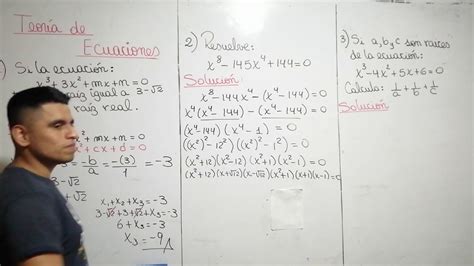 Teoría de
Ecuaciones
Si la ecuación:
x³+3x²+mx+n=0
raíz igual a 3-√2
raíz real.
x²+mx+n=0
x²+cx+d=0
=-b/a=-(3)/1=-3
3-√2
+√2
x₁+x₂+x₃=-3
3-√2+3+√2+x₃=-3
6+x₃=-3
x₃=-9
2) Resuelve:
x⁸-145x⁴+144=0
Solución:
x⁸-144x⁴-(x⁴-144)=0
x⁴(x⁴-144)-(x⁴-144)=0
(x⁴-144)(x⁴-1)=0
((x²)²-12²)((x²)²-1²)=0
(x²+12)(x²-12)(x²+1)(x²-1)=0
(x²+12)(x+√12)(x-√12)(x²+1)(x+1)(x-1)=0
3) Si a,b y c son raíces
de la ecuación:
x³-4x²+5x+6=0
Calcula: 1/a+1/b+1/c
Solución